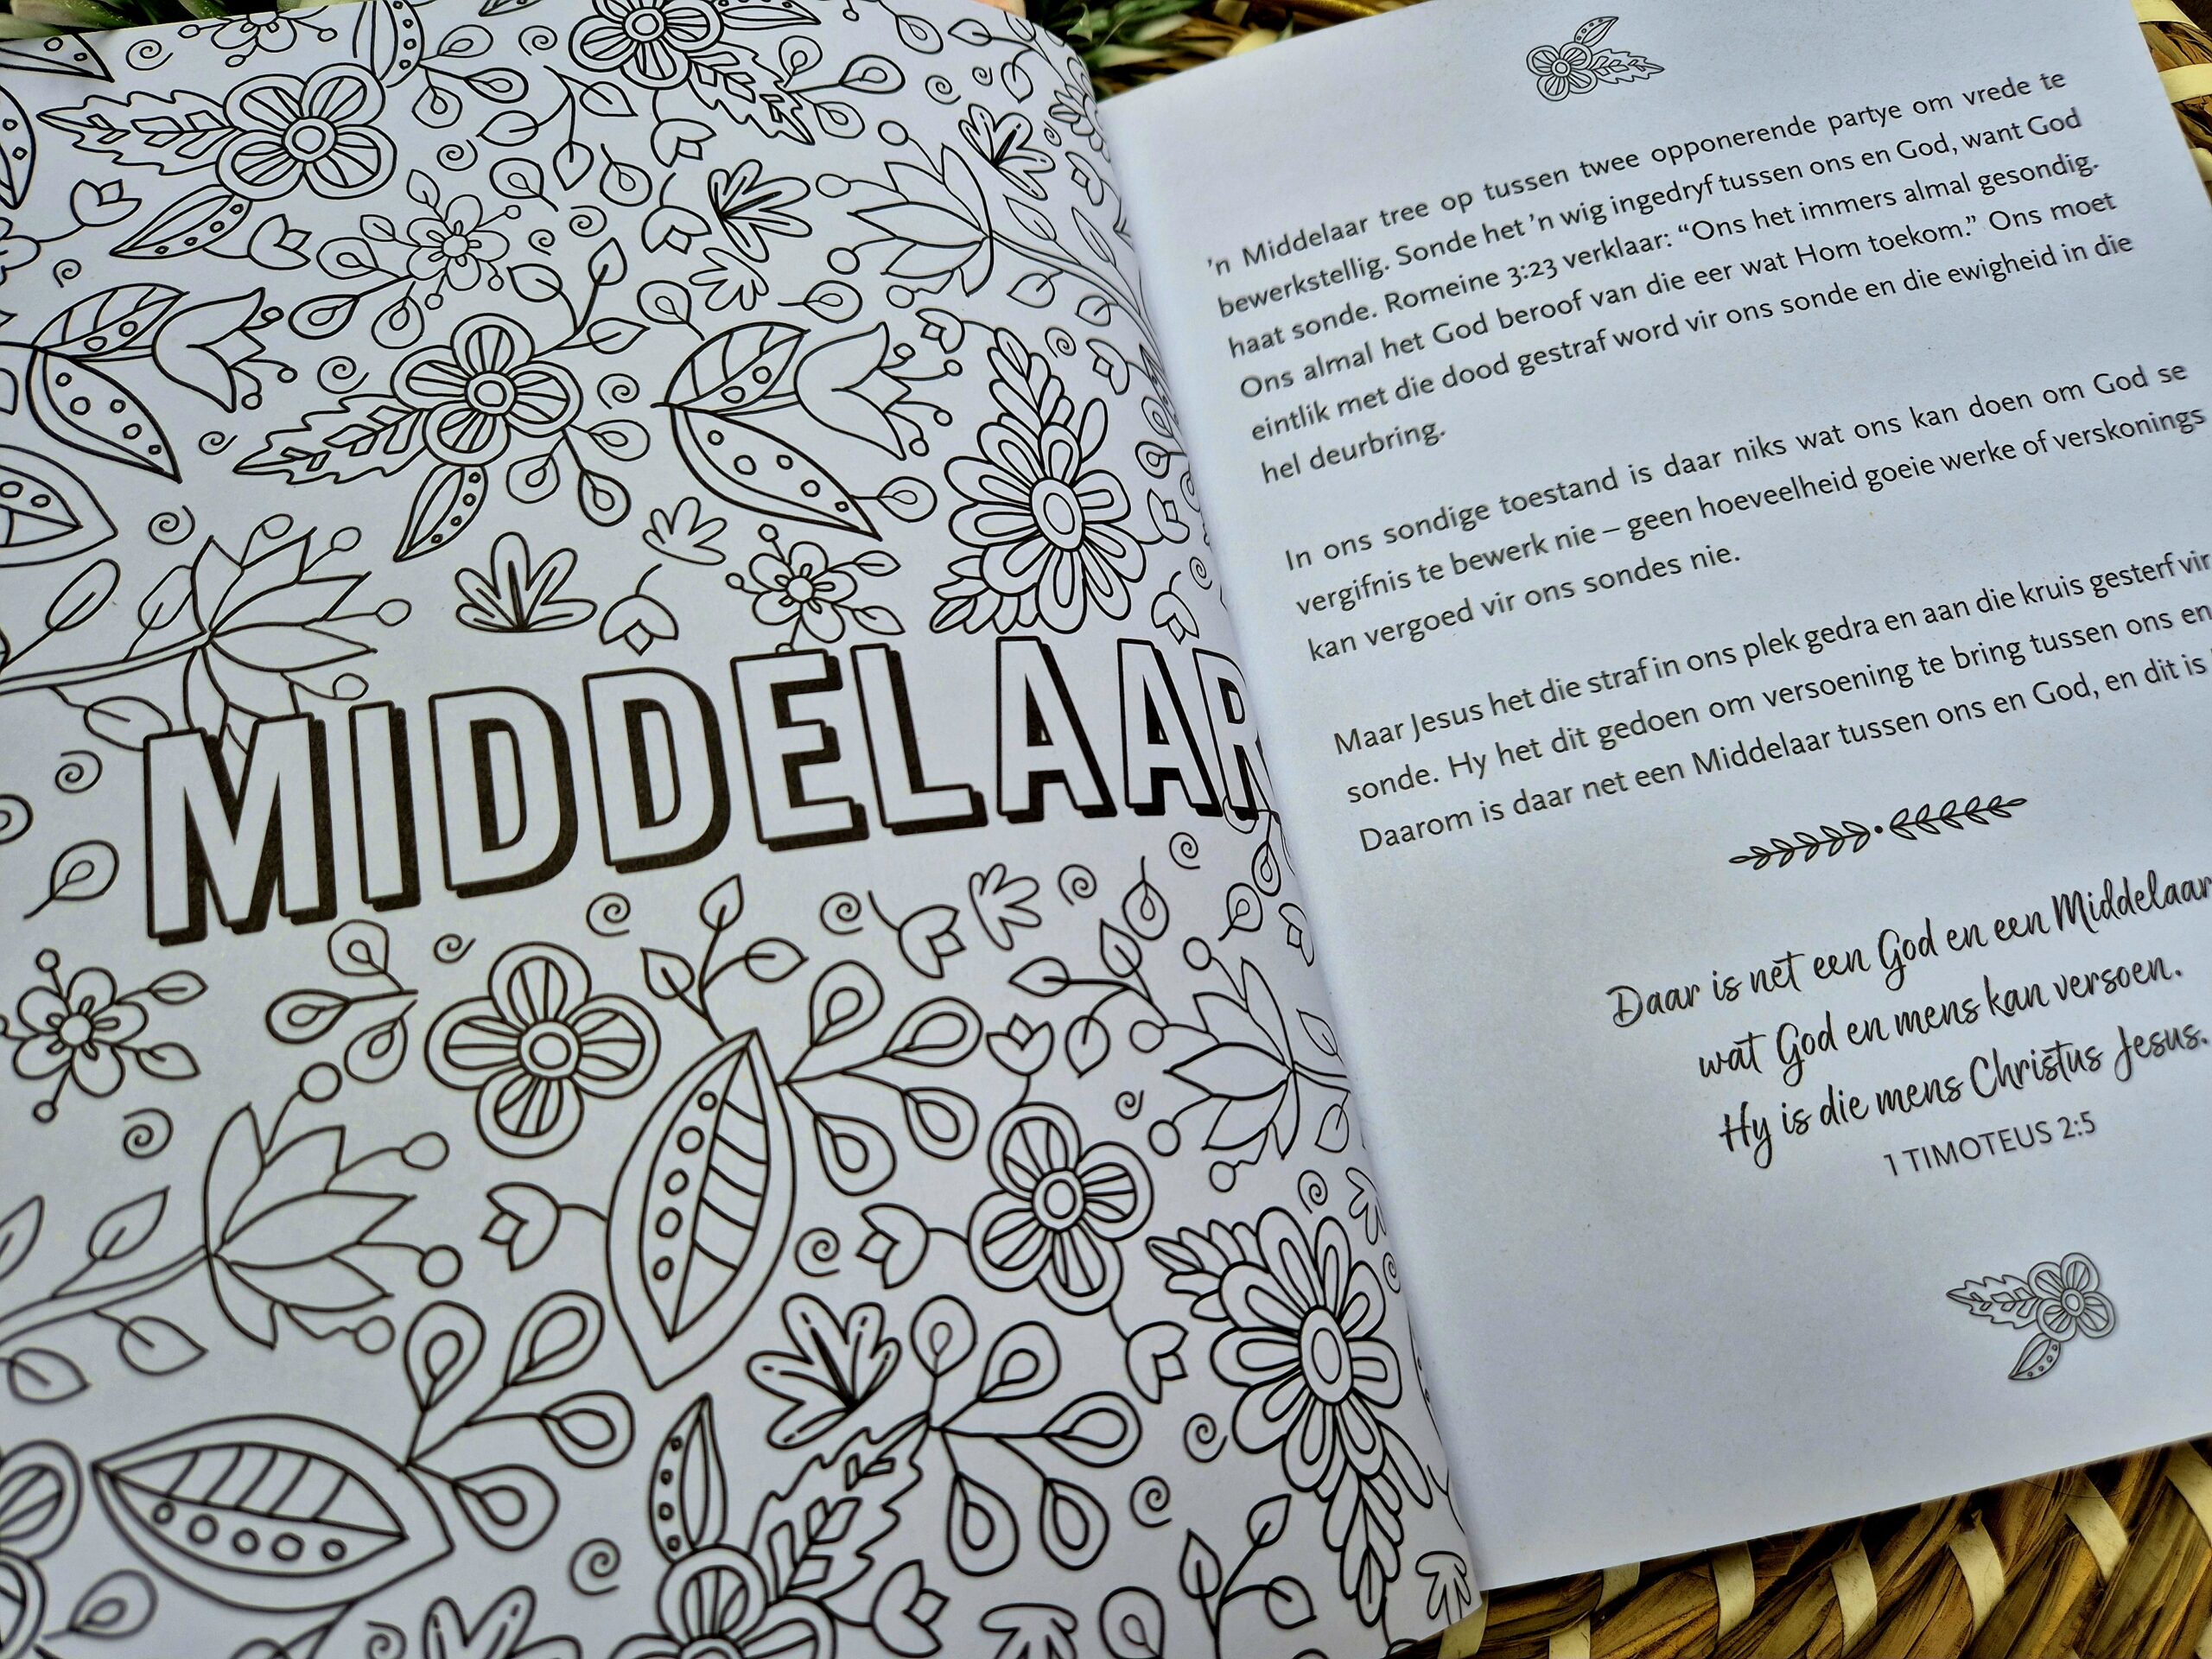 MIDDELAAR
'n Middelaar tree op tussen twee opponerende partye om vrede te
bewerkstellig. Sonde het 'n wig ingedryf tussen ons en God, want God
haat sonde. Romeine 3:23 verklaar: “Ons het immers almal gesondig.
Ons almal het God beroof van die eer wat Hom toekom.” Ons moet
eintlik met die dood gestraf word vir ons sonde en die ewigheid in die
hel deurbring.
In ons sondige toestand is daar niks wat ons kan doen om God se
vergifnis te bewerk nie – geen hoeveelheid goeie werke of verskonings
kan vergoed vir ons sondes nie.
Maar Jesus het die straf in ons plek gedra en aan die kruis gesterf vir
sonde. Hy het dit gedoen om versoening te bring tussen ons en
Daarom is daar net een Middelaar tussen ons en God, en dit is
Daar is net een God en een Middelaar
wat God en mens kan versoen.
Hy is die mens Christus Jesus.
1 TIMOTEUS 2:5